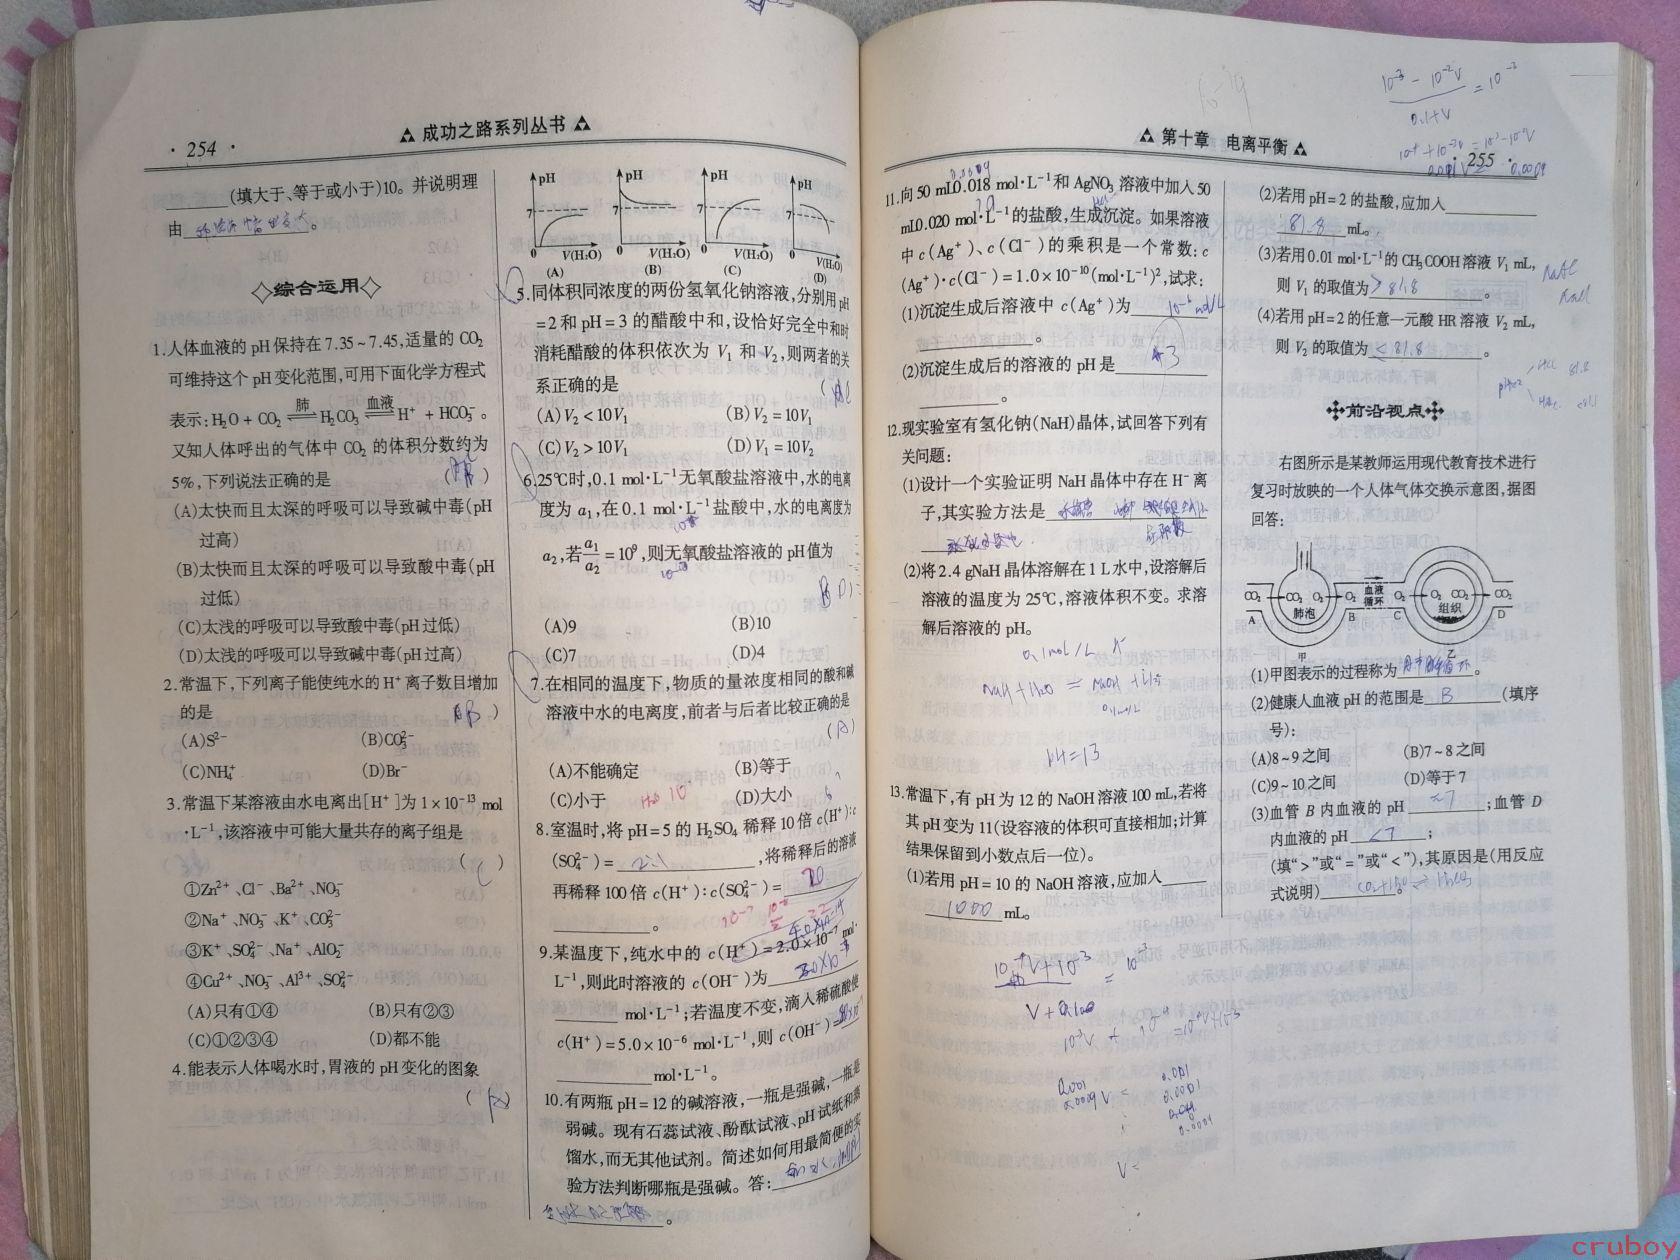 · 254 ·
成功之路系列丛书
________(填大于、等于或小于)10。并说明理
由________。
综合运用
1.人体血液的 pH 保持在 7.35~7.45,适量的 CO₂
可维持这个 pH 变化范围,可用下面化学方程式
表示:H₂O + CO₂ ⇌(肺) H₂CO₃ ⇌(血液) H⁺ + HCO₃⁻。
又知人体呼出的气体中 CO₂ 的体积分数约为
5%,下列说法正确的是 ( )
(A)太快而且太深的呼吸可以导致碱中毒(pH
过高)
(B)太快而且太深的呼吸可以导致酸中毒(pH
过低)
(C)太浅的呼吸可以导致酸中毒(pH过低)
(D)太浅的呼吸可以导致碱中毒(pH过高)
2.常温下,下列离子能使纯水的 H⁺ 离子数目增加
的是 ( B )
(A)S²⁻ (B)CO₃²⁻
(C)NH₄⁺ (D)Br⁻
3.常温下某溶液由水电离出[H⁺]为 1×10⁻¹³ mol
·L⁻¹,该溶液中可能大量共存的离子组是
( C )
①Zn²⁺、Cl⁻、Ba²⁺、NO₃⁻
②Na⁺、NO₃⁻、K⁺、CO₃²⁻
③K⁺、SO₄²⁻、Na⁺、AlO₂⁻
④Cu²⁺、NO₃⁻、Al³⁺、SO₄²⁻
(A)只有①④ (B)只有②③
(C)①②③④ (D)都不能
4.能表示人体喝水时,胃液的 pH 变化的图象
( )
pH pH pH pH
7 7 7 7
0 V(H₂O) 0 V(H₂O) 0 V(H₂O) 0 V(H₂O)
(A) (B) (C) (D)
5.同体积同浓度的两份氢氧化钠溶液,分别用 pH
=2 和 pH=3 的醋酸中和,设恰好完全中和时
消耗醋酸的体积依次为 V₁ 和 V₂,则两者的关
系正确的是 ( )
(A)V₂<10V₁ (B)V₂=10V₁
(C)V₂>10V₁ (D)V₁=10V₂
6.25℃时,0.1 mol·L⁻¹无氧酸盐溶液中,水的电离
度为 a₁,在 0.1 mol·L⁻¹盐酸中,水的电离度为
a₂,若 a₁/a₂ = 10⁹,则无氧酸盐溶液的 pH 值为
(A)9 (B)10
(C)7 (D)4
7.在相同的温度下,物质的量浓度相同的酸和碱
溶液中水的电离度,前者与后者比较正确的是
(A)
(A)不能确定 (B)等于
(C)小于 (D)大小
8.室温时,将 pH=5 的 H₂SO₄ 稀释 10 倍 c(H⁺):c
(SO₄²⁻)= 2:1 ,将稀释后的溶液
再稀释 100 倍 c(H⁺):c(SO₄²⁻)= 20
________。
9.某温度下,纯水中的 c(H⁺)=2.0×10⁻⁷ mol·
L⁻¹,则此时溶液的 c(OH⁻)为________
________mol·L⁻¹;若温度不变,滴入稀硫酸使
c(H⁺)=5.0×10⁻⁶ mol·L⁻¹,则 c(OH⁻)=
________mol·L⁻¹。
10.有两瓶 pH=12 的碱溶液,一瓶是强碱,一瓶是
弱碱。现有石蕊试液、酚酞试液、pH 试纸和蒸
馏水,而无其他试剂。简述如何用最简便的实
验方法判断哪瓶是强碱。答:________
________。
第十章 电离平衡
· 255 ·
11.向 50 mL0.018 mol·L⁻¹和 AgNO₃ 溶液中加入 50
mL0.020 mol·L⁻¹的盐酸,生成沉淀。如果溶液
中 c(Ag⁺)、c(Cl⁻)的乘积是一个常数:c
(Ag⁺)·c(Cl⁻)=1.0×10⁻¹⁰(mol·L⁻¹)²,试求:
(1)沉淀生成后溶液中 c(Ag⁺)为________
________。
(2)沉淀生成后的溶液的 pH 是 3
________。
12.现实验室有氢化钠(NaH)晶体,试回答下列有
关问题:
(1)设计一个实验证明 NaH 晶体中存在 H⁻离
子,其实验方法是________
________.
(2)将 2.4 gNaH 晶体溶解在 1 L 水中,设溶解后
溶液的温度为 25℃,溶液体积不变。求溶
解后溶液的 pH。
0.1mol/L
pH=13
13.常温下,有 pH 为 12 的 NaOH 溶液 100 mL,若将
其 pH 变为 11(设容液的体积可直接相加;计算
结果保留到小数点后一位)。
(1)若用 pH=10 的 NaOH 溶液,应加人____
1000 mL。
(2)若用 pH=2 的盐酸,应加人________
81.8 mL。
(3)若用 0.01 mol·L⁻¹的 CH₃COOH 溶液 V₁ mL,
则 V₁ 的取值为 >81.8 。
(4)若用 pH=2 的任意一元酸 HR 溶液 V₂ mL,
则 V₂ 的取值为 <81.8 。
前沿视点
右图所示是某教师运用现代教育技术进行
复习时放映的一个人体气体交换示意图,据图
回答:
CO₂ CO₂ O₂ O₂ 血液循环 O₂ O₂ CO₂ CO₂
A 肺泡 B C 组织 D
甲 乙
(1)甲图表示的过程称为________。
(2)健康人血液 pH 的范围是 B (填序
号):
(A)8~9 之间 (B)7~8 之间
(C)9~10 之间 (D)等于 7
(3)血管 B 内血液的 pH ≈7 ;血管 D
内血液的 pH <7 ;
(填“>”或“=”或“<”),其原因是(用反应
式说明)________。
cruboy